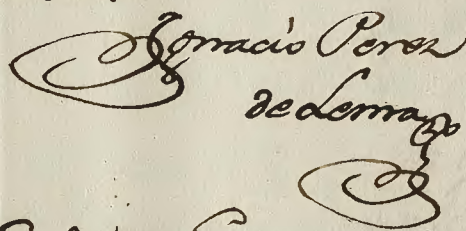 Ignacio Perez
de Lerma